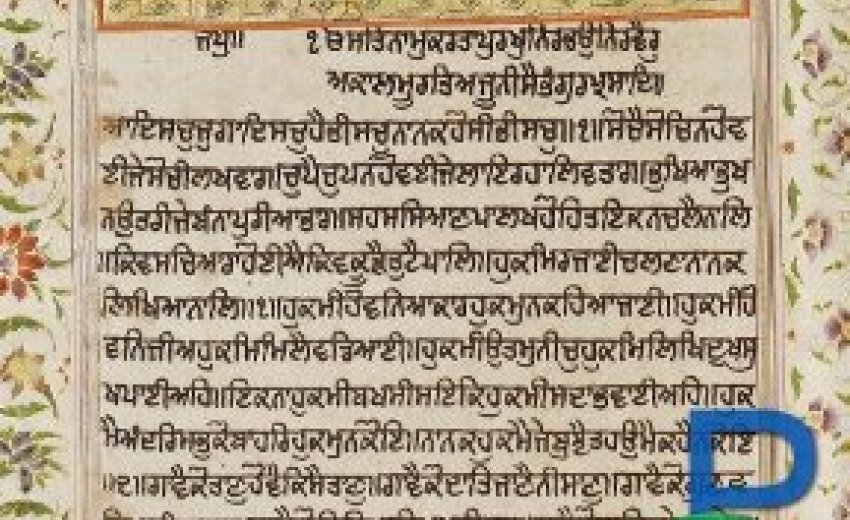 ਜਪੁ॥ ੧ਓ ਸਤਿਨਾਮੁਕਰਤਾਪੁਰਖੁਨਿਰਭਉਨਿਰਵੈਰੁ
ਅਕਾਲਮੂਰਤਿਅਜੂਨੀਸੈਭੰਗੁਰਪ੍ਰਸਾਦਿ॥
ਆਦਿਸਚੁਜੁਗਾਦਿਸਚੁਹੈਭੀਸਚੁਨਾਨਕਹੋਸੀਭੀਸਚੁ॥੧॥ਸੋਚੈਸੋਚਿਨਹੋਵ
ਈਜੇਸੋਚੀਲਖਵਾਰ॥ਚੁਪੈਚੁਪਨਹੋਵਈਜੇਲਾਇਰਹਾਲਿਵਤਾਰ॥ਭੁਖਿਆਭੁਖ
ਨਉਤਰੀਜੇਬੰਨਾਪੁਰੀਆਭਾਰ॥ਸਹਸਸਿਆਣਪਾਲਖਹੋਹਿਤਇਕਨਚਲੈਨਾਲਿ
॥ਕਿਵਸਚਿਆਰਾਹੋਈਐਕਿਵਕੂੜੈਤੁਟੈਪਾਲਿ॥ਹੁਕਮਿਰਜਾਈਚਲਣਾਨਾਨਕ
ਲਿਖਿਆਨਾਲਿ॥੧॥ਹੁਕਮੀਹੋਵਨਿਆਕਾਰਹੁਕਮੁਨਕਹਿਆਜਾਈ॥ਹੁਕਮੀਹੋ
ਵਨਿਜੀਅਹੁਕਮਿਮਿਲੈਵਡਿਆਈ॥ਹੁਕਮੀਉਤਮੁਨੀਚੁਹੁਕਮਿਲਿਖਿਦੁਖਸੁ
ਖਪਾਈਅਹਿ॥ਇਕਨਾਹੁਕਮੀਬਖਸੀਸਇਕਿਹੁਕਮੀਸਦਾਭਵਾਈਅਹਿ॥ਹੁਕ
ਮੈਅੰਦਰਿਸਭੁਕੋਬਾਹਰਿਹੁਕਮੁਨਕੋਇ॥ਨਾਨਕਹੁਕਮੈਜੇਬੁਝੈਤਹਉਮੈਕਹੈਨਕੋਇ
॥੨॥ਗਾਵੈਕੋਤਾਣੁਹੋਵੈਕਿਸੈਤਾਣੁ॥ਗਾਵੈਕੋਦਾਤਿਜਾਣੈਨੀਸਾਣੁ॥ਗਾਵੈਕੋ